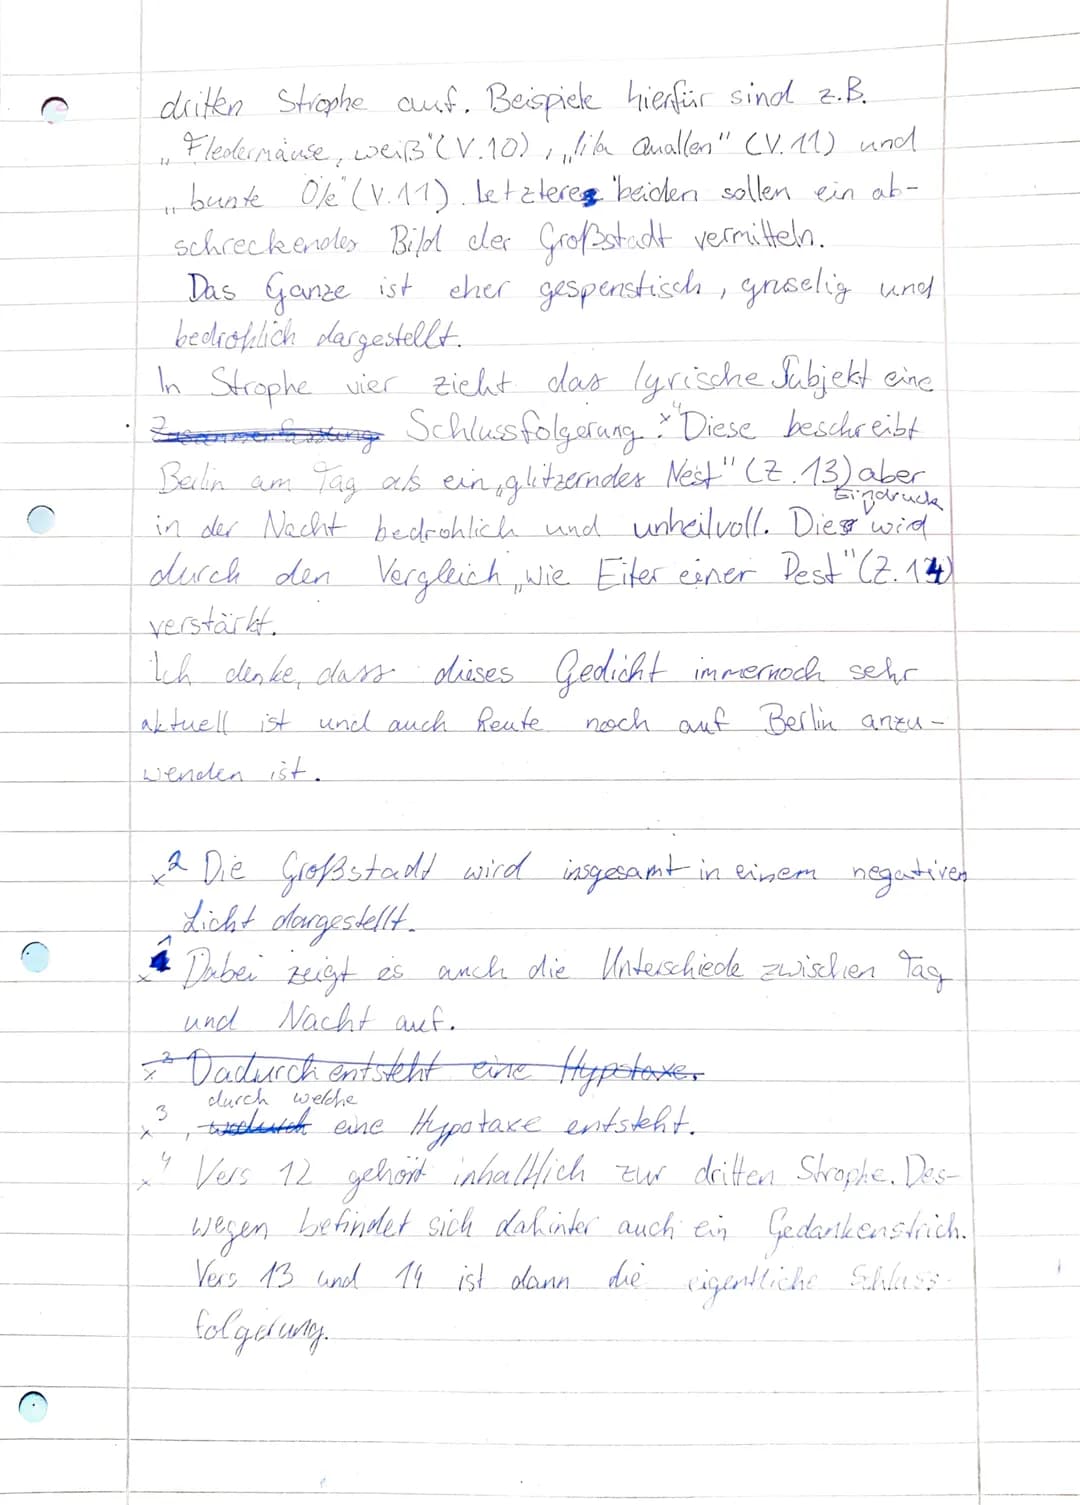 dritten Strophe auf. Beispiele hierfür sind z.B.
„Fledermäuse, weiß" (V.10), „lila Quallen" (V.11) und
„bunte Öle" (V.11). Letztere beiden sollen ein ab-
schreckendes Bild der Großstadt vermitteln.
Das Ganze ist eher gespenstisch, gruselig und
bedrohlich dargestellt.
In Strophe vier zieht das lyrische Subjekt eine
Zusammenfassung Schlussfolgerung. x4 Diese beschreibt
Berlin am Tag als ein „glitzerndes Nest" (Z.13) aber
Eindruck
in der Nacht bedrohlich und unheilvoll. Dieser wird
durch den Vergleich „wie Eiter einer Pest" (Z.14)
verstärkt.
Ich denke, dass dieses Gedicht immernoch sehr
aktuell ist und auch heute noch auf Berlin anzu-
wenden ist.
x2 Die Großstadt wird insgesamt in einem negativen
Licht dargestellt.
x1 Dabei zeigt es auch die Unterschiede zwischen Tag
und Nacht auf.
x3 Dadurch entsteht eine Hypotaxe.
durch welche
x3 , wodurch eine Hypotaxe entsteht.
x4 Vers 12 gehört inhaltlich zur dritten Strophe. Des-
wegen befindet sich dahinter auch ein Gedankenstrich.
Vers 13 und 14 ist dann die eigentliche Schluss-
folgerung.